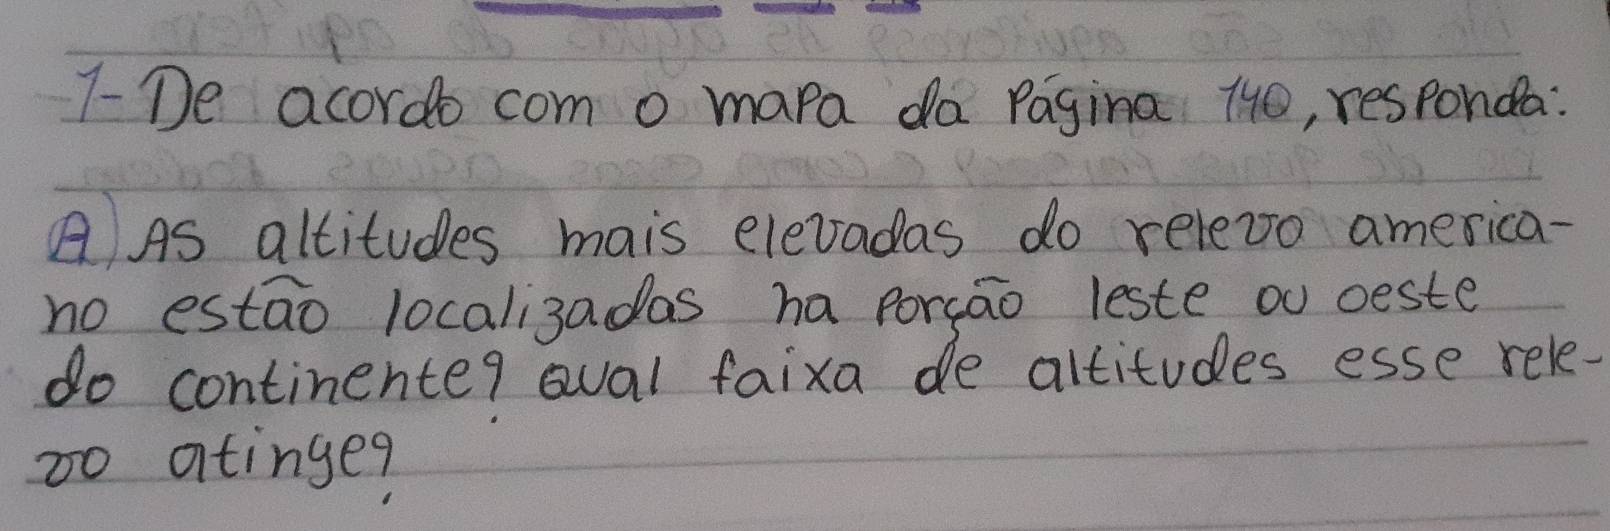 1- De acordo com o mapa da Página 140, responda:
A) AS altitudes mais elevadas do relevo america-
no estão localizadas na Porção leste ou oeste
do continente? Qual faixa de altitudes esse rele-
vo atinge?